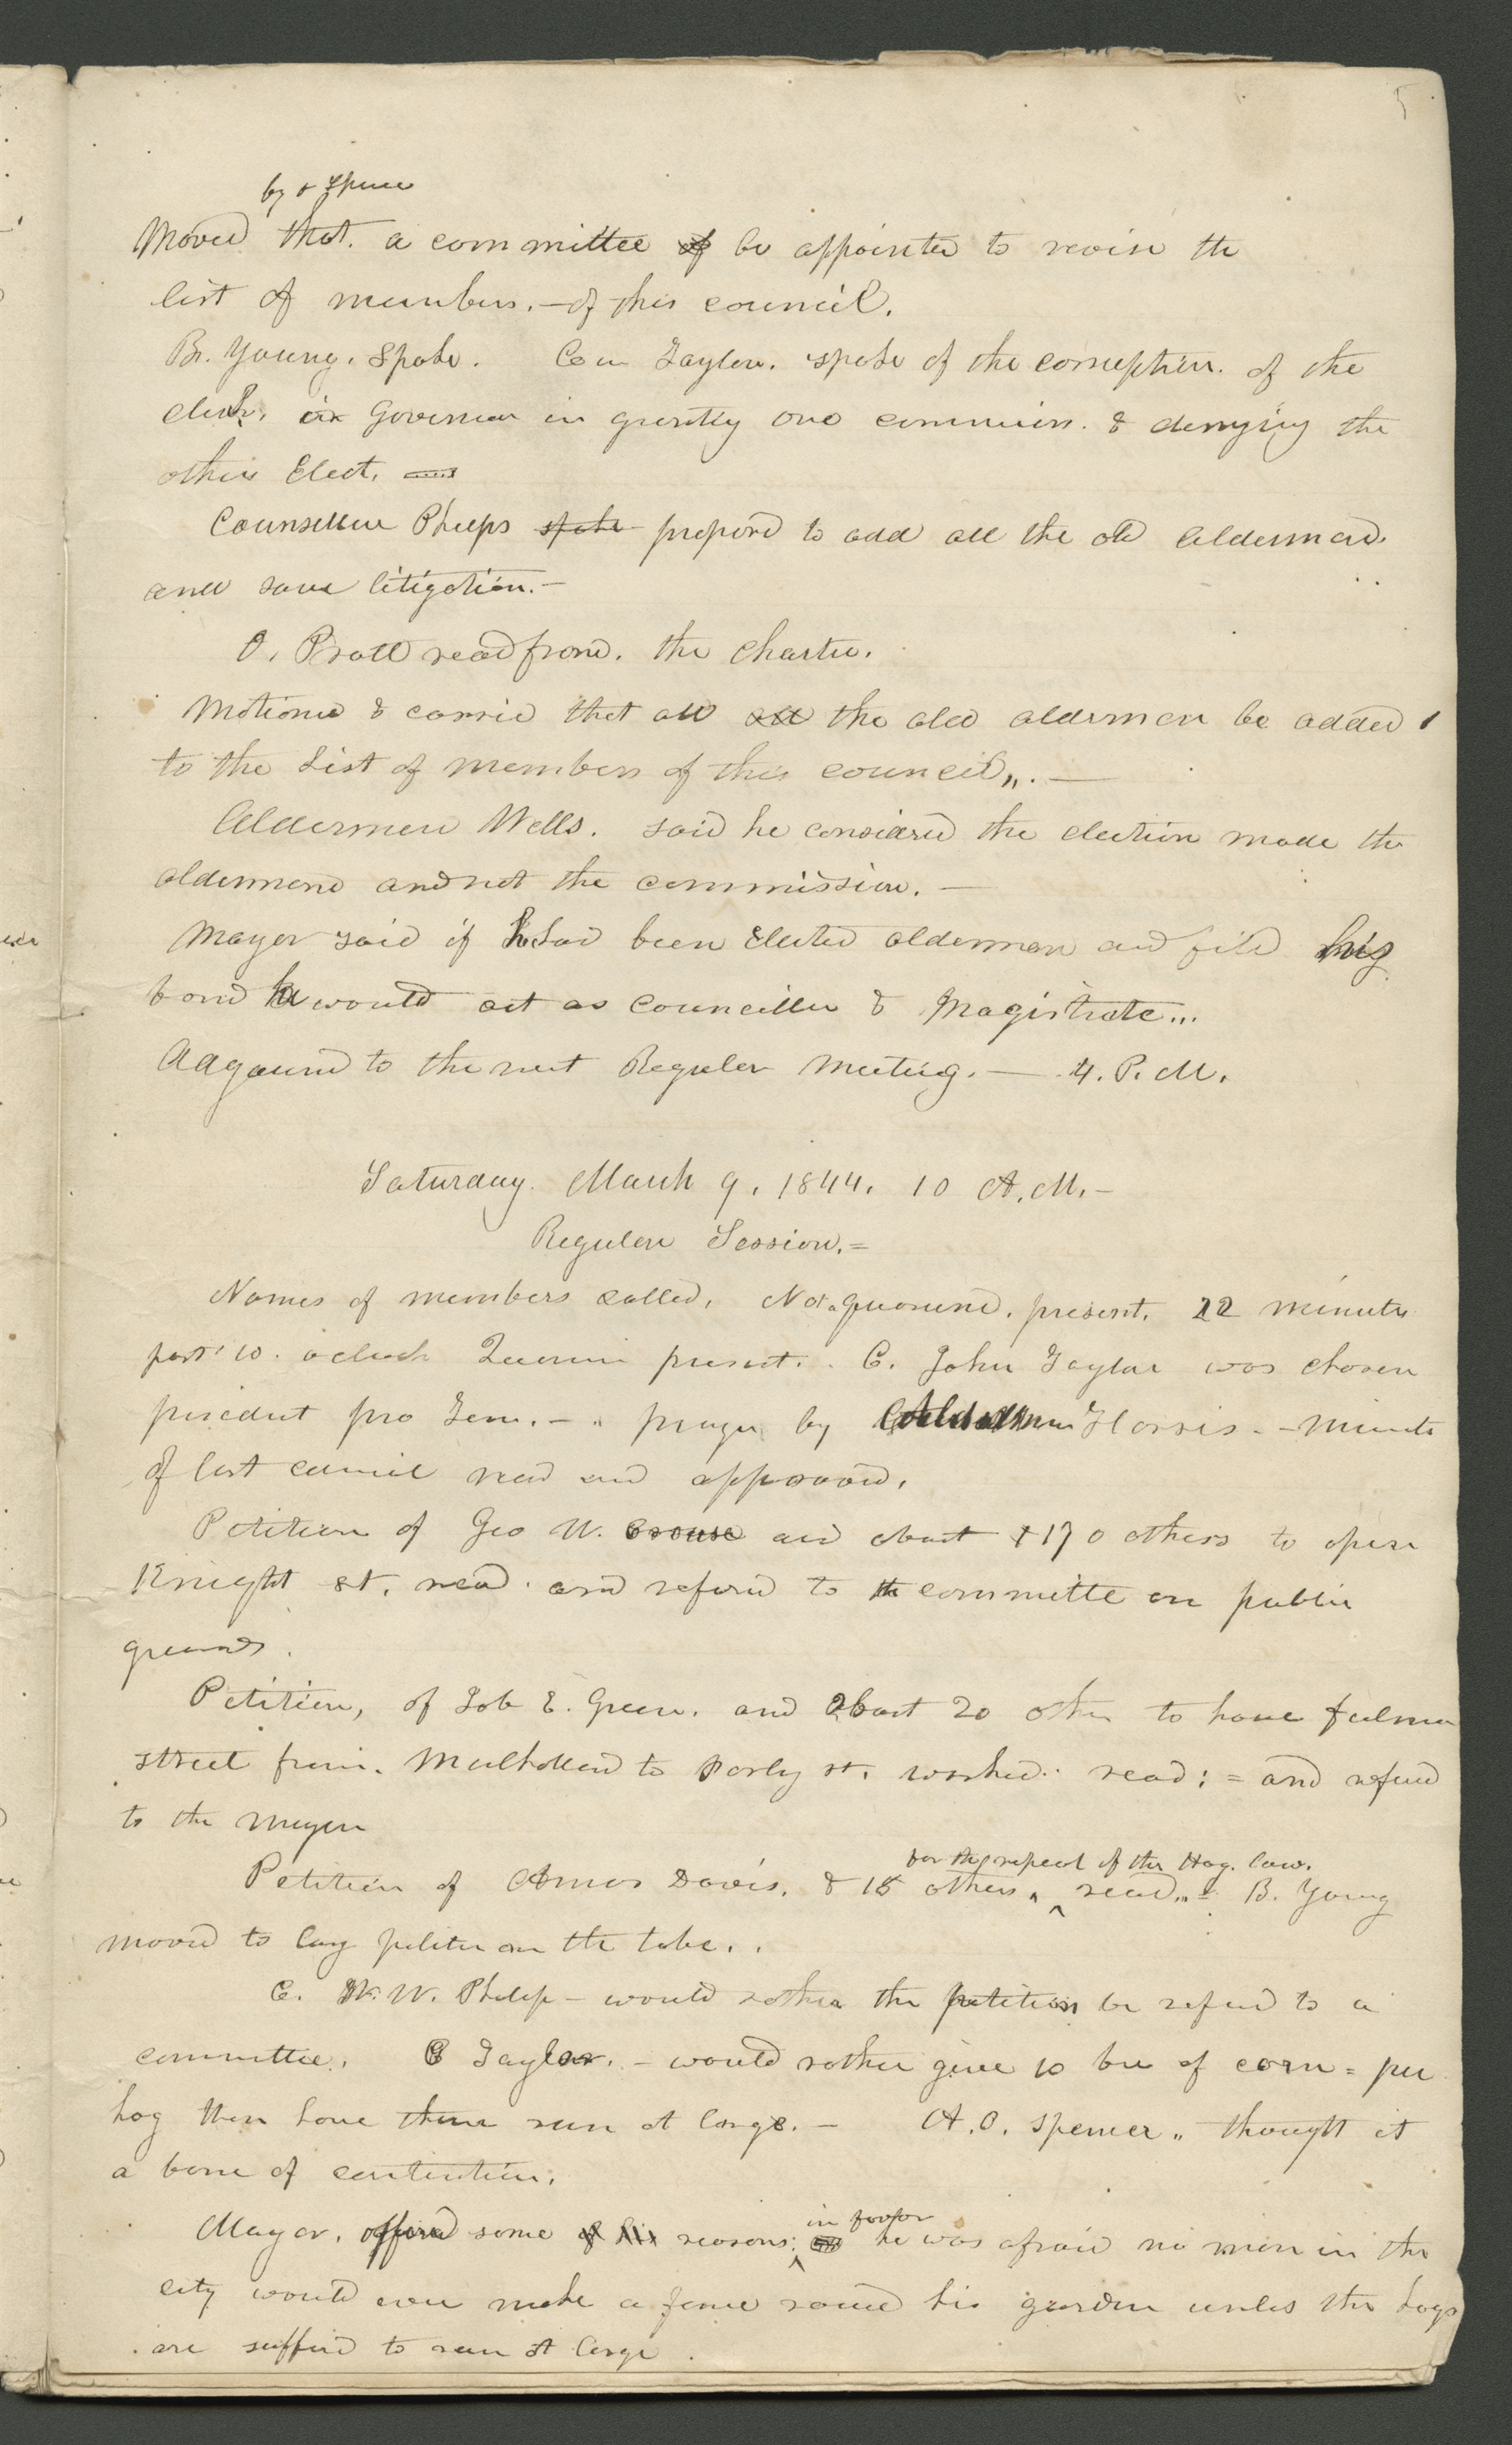 5
by O Spence
Moved that. a committee of be appointed to revise the
list of members.— of this council.
B. Young. Spoke. Coun Taylor. spoke of the corruption. of the
clerk. or Governor in granting one commission. & denying the
other Elect.
Counsellor Phelps spoke propord to add all the old Aldermen.
and save litigation.—
O. Pratt read from. the Charter.
Motioned & carried that all all the old aldermen be added
to the List of members of this council,,.—
Aldermen Wells. said he considred the election made the
aldermend and not the commission.—
Mayor said if he had been Elected alderman and fild his
bond he would act as Councillor & Magistrate...
Adgourned to the next Regular Meeting.— 4. P.M.
Saturday. March 9, 1844. 10 A.M.—
Regular Session.=
Names of members called. Not a quorum. present. 22 minutes
past 10. oclock Quorum present.. C. John Taylor was chosen
president pro Tem.— prayer by Alderman Harris.— Minutes
of last council read and approved.
Petition of Geo W. Crouse and about 170 others to open
Knight st. read. and referd to the committe on public
grounds.
Petition, of Job E. Green. and about 20 other to have fulmer
street from. Mulholland to Parly st. worked. read; = and referred
to the Mayor
for the repeal of the Hog. law.
Petition of Amos Davis. & 15 others ^ read,, = B. Young
moved to lay petition on the table..
C. W. W. Phelps — would rather the petition be referd to a
committee. C Taylor.— would rather give 10 bu of corn = per
hog then have them run at large.— A. O. Spencer,, thought it
a bone of contention.
in favor
Mayor. offered some of his reasons; ^ he was afraid no men in the
city would ever make a fence round his garden unless the hogs
are sufferd to run at large.